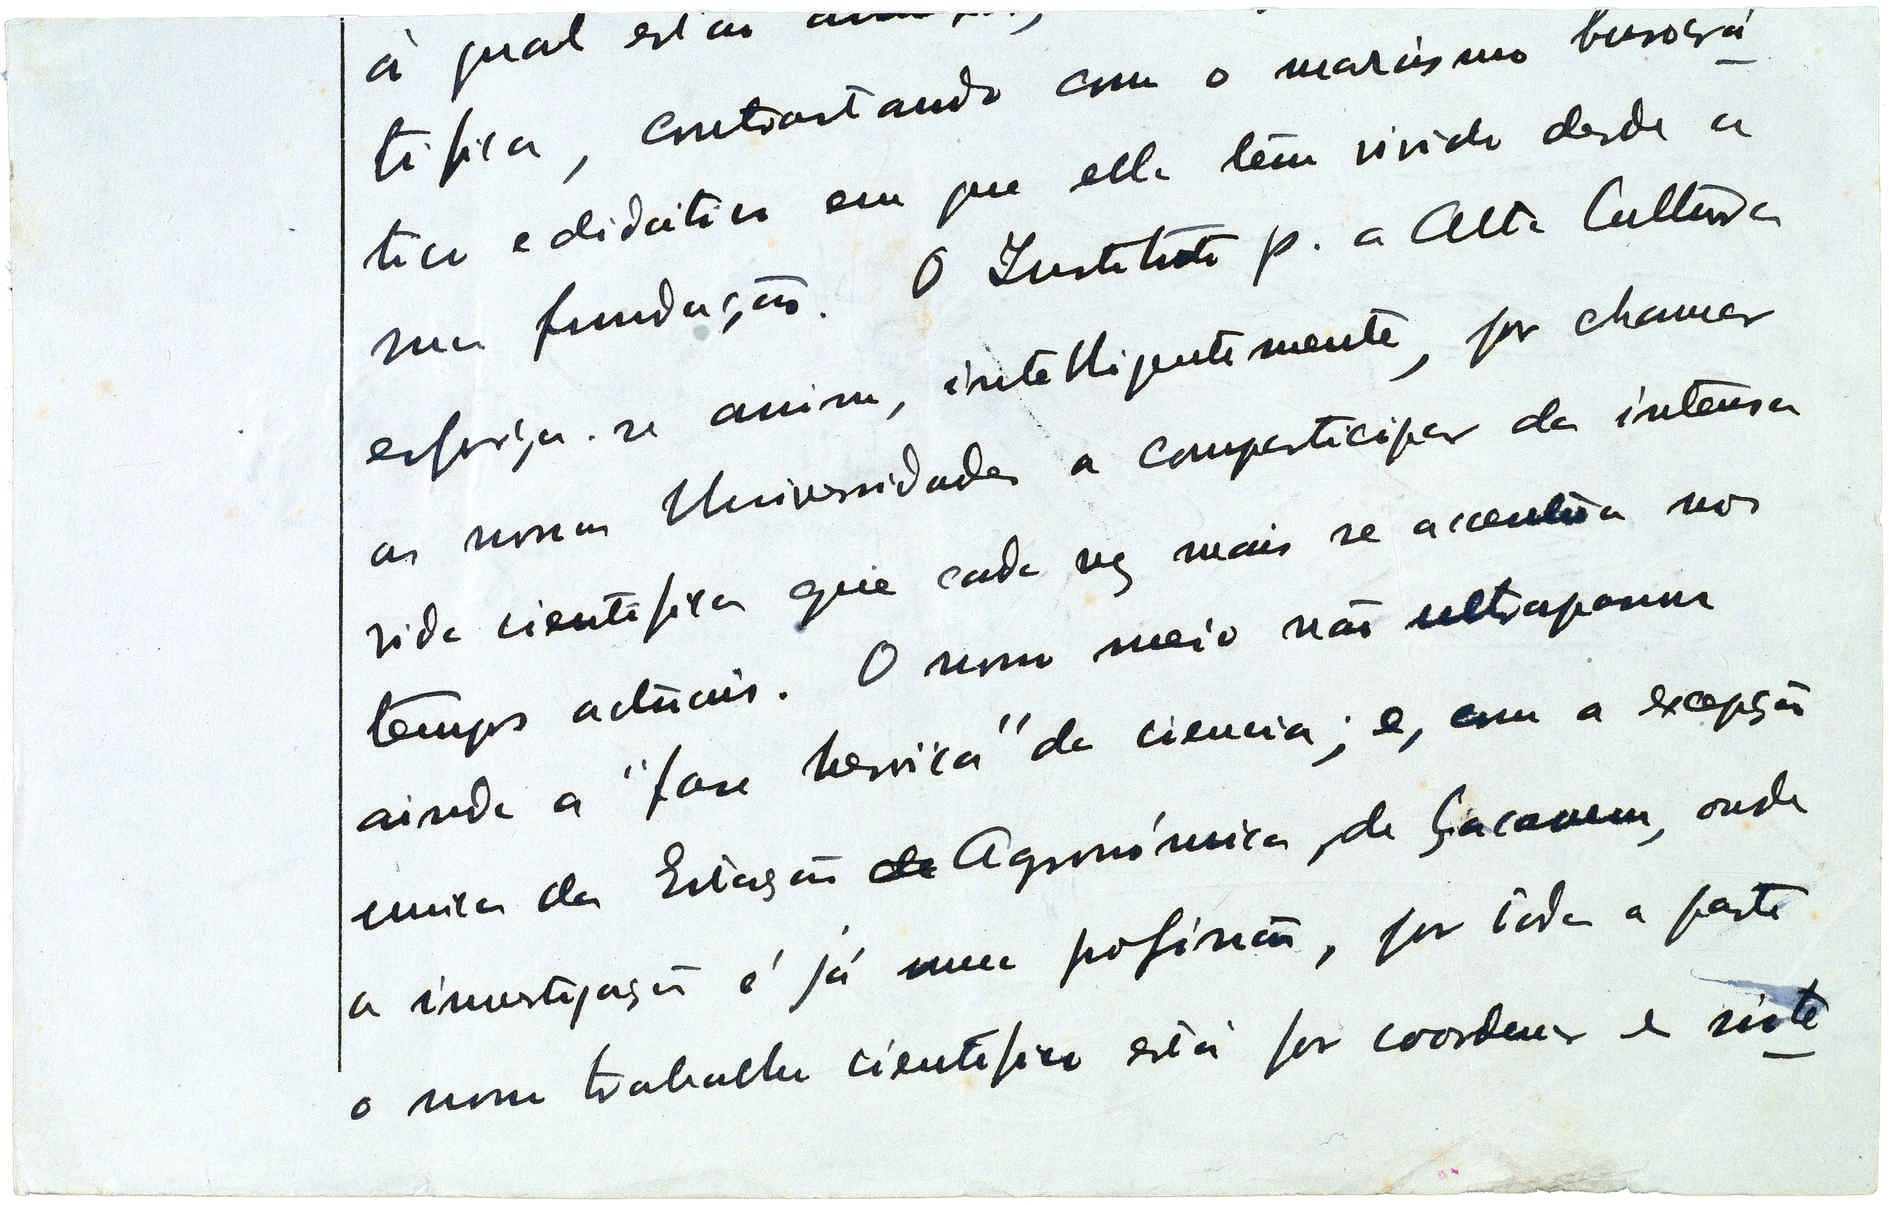 à qual estão
tifica, contrastando com o marasmo burocrá
tico e didático em que ella têm vivido desde a
sua fundação. O Instituto p. a Alta Cultura
esforça-se assim, intelligentemente, por chamar
as nossas Universidades a comparticipar da intensa
vida cientifica que cada vez mais se acentúa nos
tempos actuais. O nosso meio não ultrapassou
ainda a "fase heroica" da ciencia; e, com a excepção
unica da Estação de Agronómica, de Sacavem, onde
a investigação é já uma profissão, por toda a parte
o nosso trabalho cientifico está por coordenar e sinte